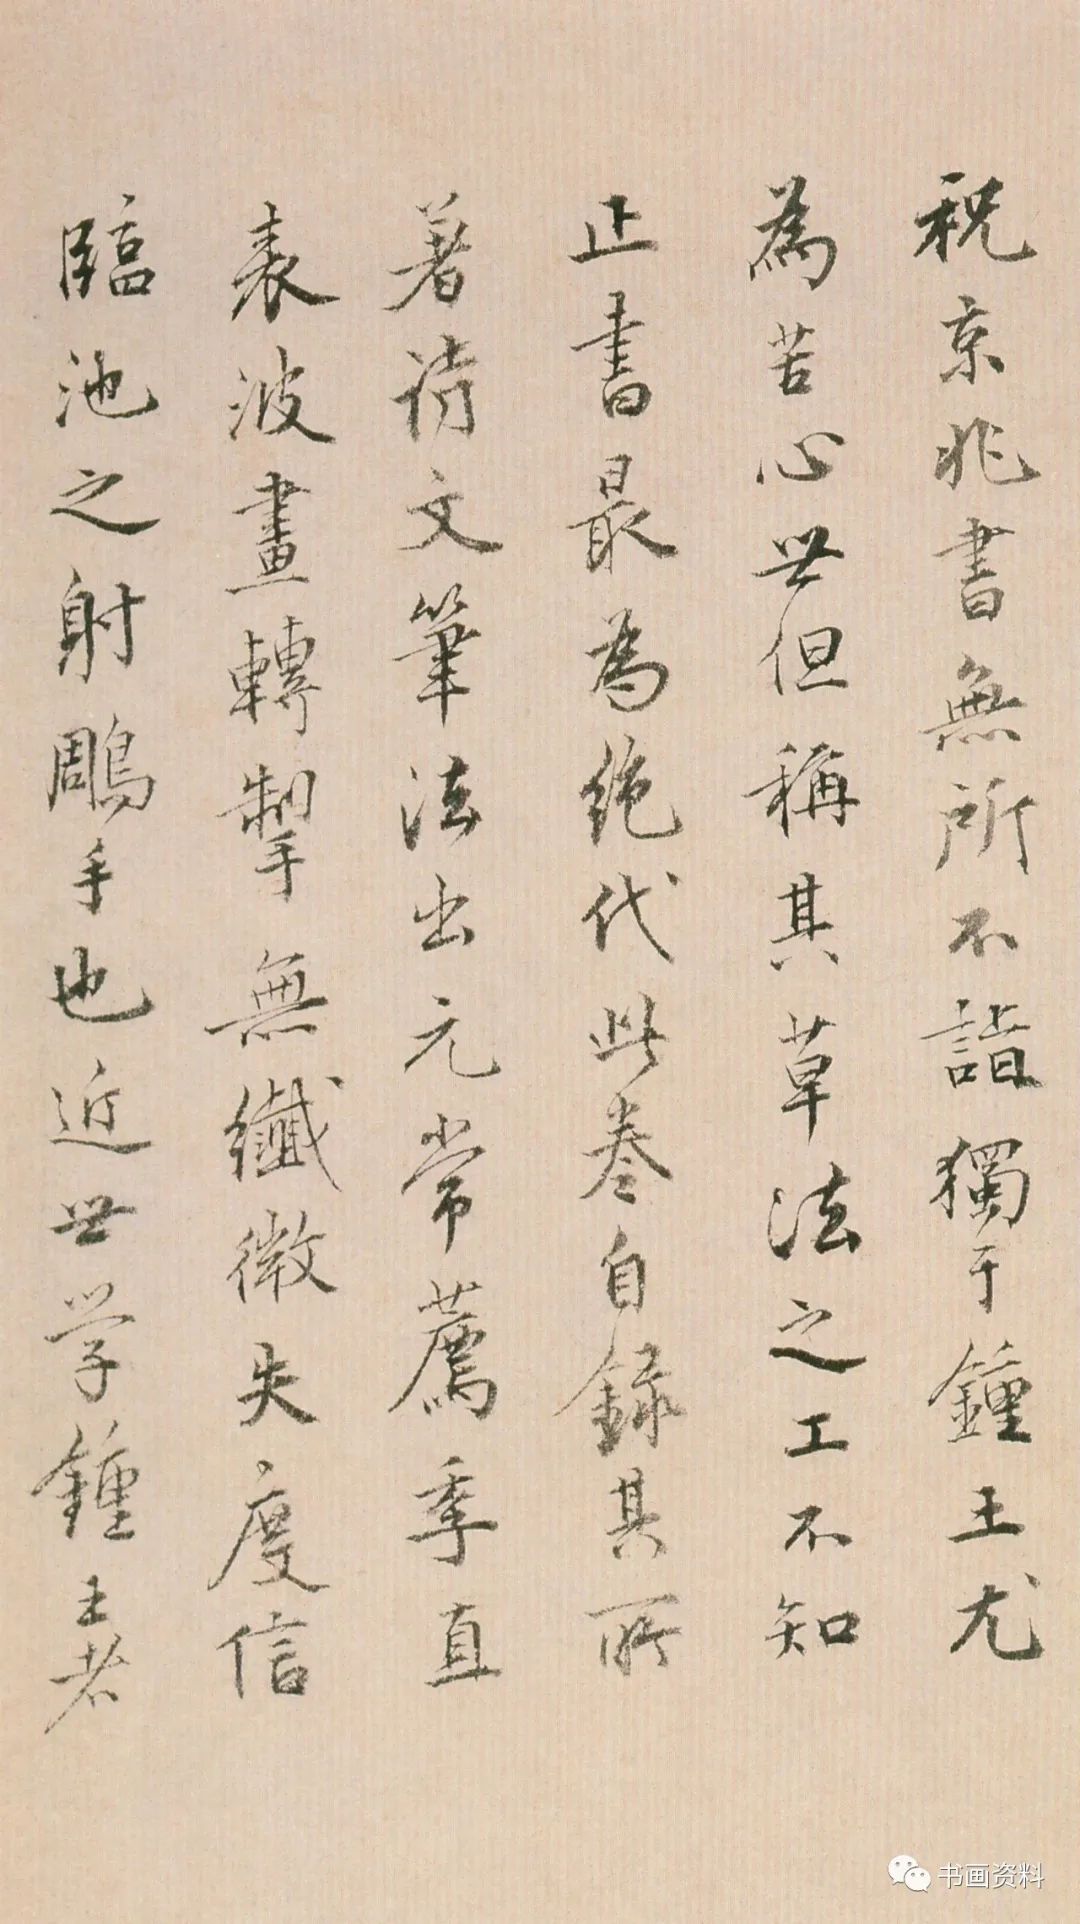 祝京兆書無所不詣獨于鍾王尤
為苦心世但稱其草法之工不知
正書最為絶代此卷自録其所
著詩文筆法出元常薦季直
表波畫轉掣無纖微失度信
臨池之射鵰手也近世学鍾王者
书画资料